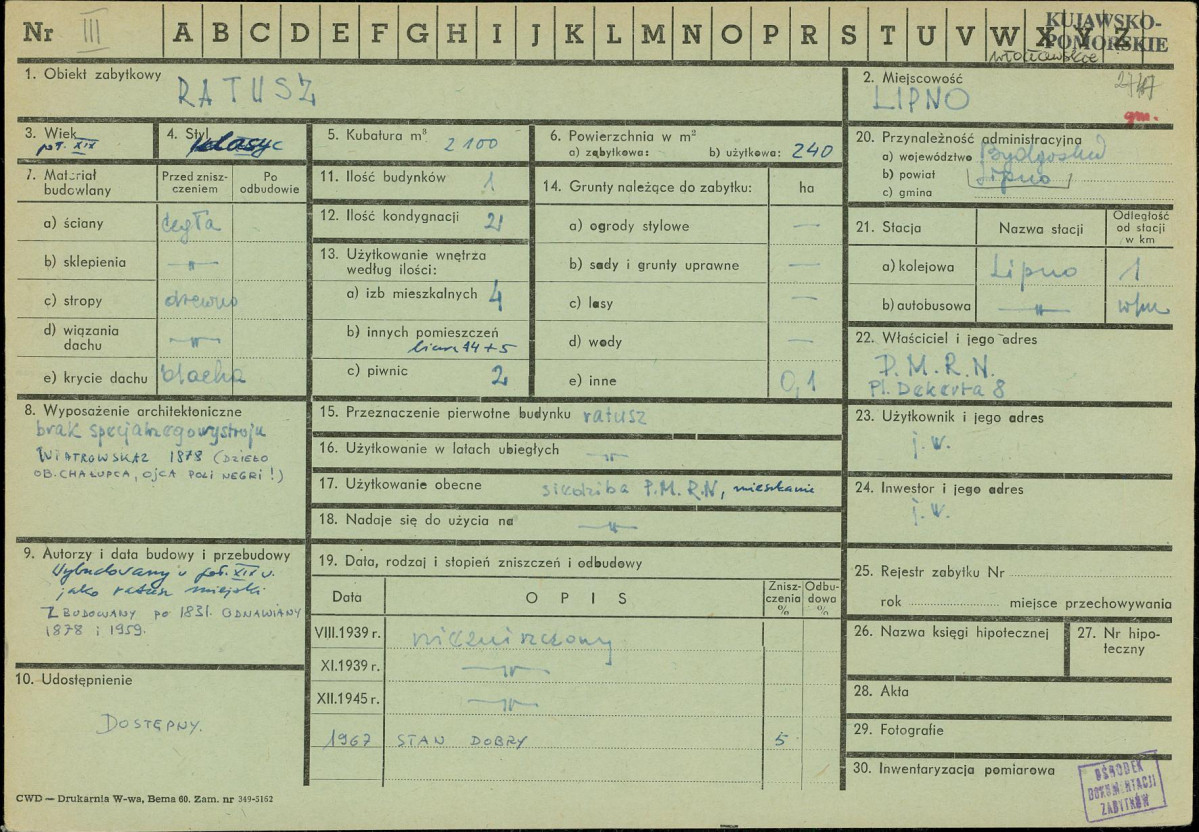 Nr III A B C D E F G H I J K L M N O P R S T U V W X Y Z
KUJAWSKO-
POMORSKIE
włocławskie
1. Obiekt zabytkowy
RATUSZ
2. Miejscowość
LIPNO
gm.
3. Wiek
poł. XIX
4. Styl
klasyc
5. Kubatura m³
2100
6. Powierzchnia w m²
a) zabytkowa: b) użytkowa: 240
7. Materiał
budowlany
Przed znisz-
czeniem
Po
odbudowie
a) ściany cegła
b) sklepienia —"—
c) stropy drewno
d) wiązania
dachu —"—
e) krycie dachu blacha
8. Wyposażenie architektoniczne
brak specjalnego wystroju
WIATROWSKAZ 1878 (DZIEŁO
OB. CHAŁUPCA, OJCA POLI NEGRI!)
9. Autorzy i data budowy i przebudowy
Wybudowany w poł. XIX w.
jako ratusz miejski.
ZBUDOWANY PO 1831. ODNAWIANY
1878 i 1959.
10. Udostępnienie
DOSTĘPNY.
11. Ilość budynków 1
12. Ilość kondygnacji 2
13. Użytkowanie wnętrza
według ilości:
a) izb mieszkalnych 4
b) innych pomieszczeń
biur 14+5
c) piwnic 2
14. Grunty należące do zabytku: ha
a) ogrody stylowe —
b) sady i grunty uprawne —
c) lasy —
d) wody —
e) inne 0,1
15. Przeznaczenie pierwotne budynku ratusz
16. Użytkowanie w latach ubiegłych —"—
17. Użytkowanie obecne siedziba P.M.R.N, mieszkanie
18. Nadaje się do użycia na —"—
19. Data, rodzaj i stopień zniszczeń i odbudowy
Data OPIS
Znisz-
czenia
%
Odbu-
dowa
%
VIII.1939 r. niezniszczony
XI.1939 r. —"—
XII.1945 r. —"—
1967 STAN DOBRY 5
20. Przynależność administracyjna
a) województwo Bydgoskie
b) powiat Lipno
c) gmina
21. Stacja
Nazwa stacji
Odległość
od stacji
w km
a) kolejowa Lipno 1
b) autobusowa —"—
22. Właściciel i jego adres
P.M.R.N.
Pl. Dekerta 8
23. Użytkownik i jego adres
j.w.
24. Inwestor i jego adres
j.w.
25. Rejestr zabytku Nr
rok miejsce przechowywania
26. Nazwa księgi hipotecznej
27. Nr hipo-
teczny
28. Akta
29. Fotografie
30. Inwentaryzacja pomiarowa
OŚRODEK
DOKUMENTACJI
ZABYTKÓW
CWD — Drukarnia W-wa, Bema 60. Zam. nr 349-5162